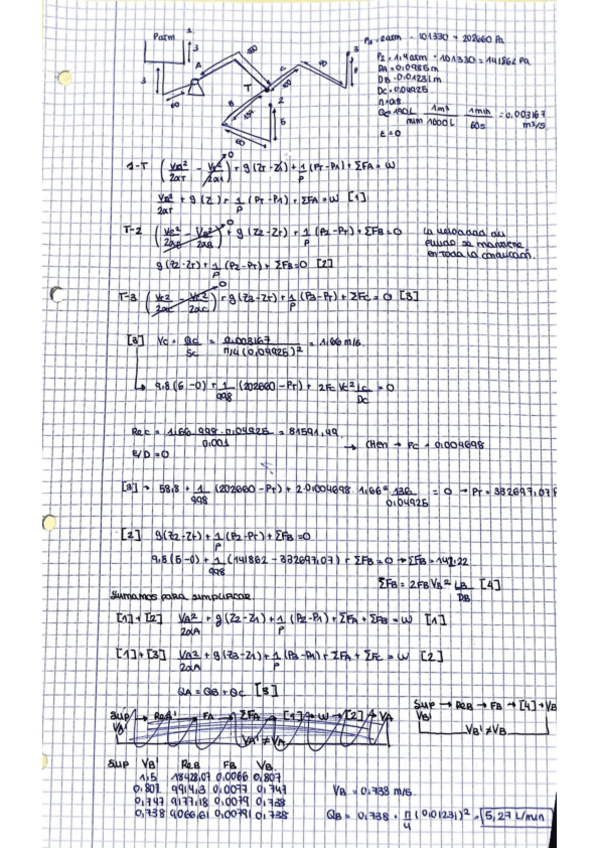 Patm
1
3
A
3
T
B
C
2
6
3
P3 = 2atm · 101330 = 202660 Pa
P2 = 1,4 atm · 101330 = 141862 Pa
DA = 0,0985 m
DB = 0,01231 m
DC = 0,04925
QC = 190 L/min · 1m³/1000 L · 1min/60s = 0,003167 m³/s
E = 0
1-T (VA²/2αT - V1²/2α1) + g(ZT - Z1) + 1/ρ (PT - P1) + ΣFA = W
VA²/2αT + g(Z) + 1/ρ (PT - P1) + ΣFA = W [1]
T-2 (VB²/2αB - VB²/2αB) + g(Z2 - ZT) + 1/ρ (P2 - PT) + ΣFB = 0
La velocidad del fluido se mantiene en toda la conducción.
g(Z2 - ZT) + 1/ρ (P2 - PT) + ΣFB = 0 [2]
T-3 (VC²/2αC - VC²/2αC) + g(Z3 - ZT) + 1/ρ (P3 - PT) + ΣFC = 0 [3]
[3] VC = QC/SC = 0,003167/π/4 (0,04925)² = 1,66 m/s.
9,8(6 - 0) + 1/998 (202660 - PT) + 2FC VC² LC/DC = 0
ReC = 1,66 · 998 · 0,04925/0,001 = 81591,49
E/D = 0
→ Chen → FC = 0,004698
[3] → 58,8 + 1/998 (202660 - PT) + 2 · 0,004698 · 1,66² · 130/0,04925 = 0 → PT = 332697,07 P
[2] g(Z2 - ZT) + 1/ρ (P2 - PT) + ΣFB = 0
9,8(5 - 0) + 1/998 (141862 - 332697,07) + ΣFB = 0 → ΣFB = 142,22
ΣFB = 2FB VB² LB/DB [4]
Sumamos para simplificar
[1] + [2] VA²/2αA + g(Z2 - Z1) + 1/ρ (P2 - P1) + ΣFA + ΣFB = W [1]
[1] + [3] VA²/2αA + g(Z3 - Z1) + 1/ρ (P3 - P1) + ΣFA + ΣFC = W [2]
QA = QB + QC [3]
Sup VB' → ReA' → FA → ΣFA → [1] → W → [2] → VA
VA' ≠ VA
Sup VB' → ReB → FB → [4] → VB
VB' ≠ VB
Sup VB' ReB FB VB
1,5 18428,07 0,0066 0,807
0,807 9914,3 0,0077 0,747
0,747 9177,18 0,0079 0,738
0,738 9066,61 0,00791 0,738
VB = 0,738 m/s.
QB = 0,738 · π/4 (0,01231)² = 5,27 L/min